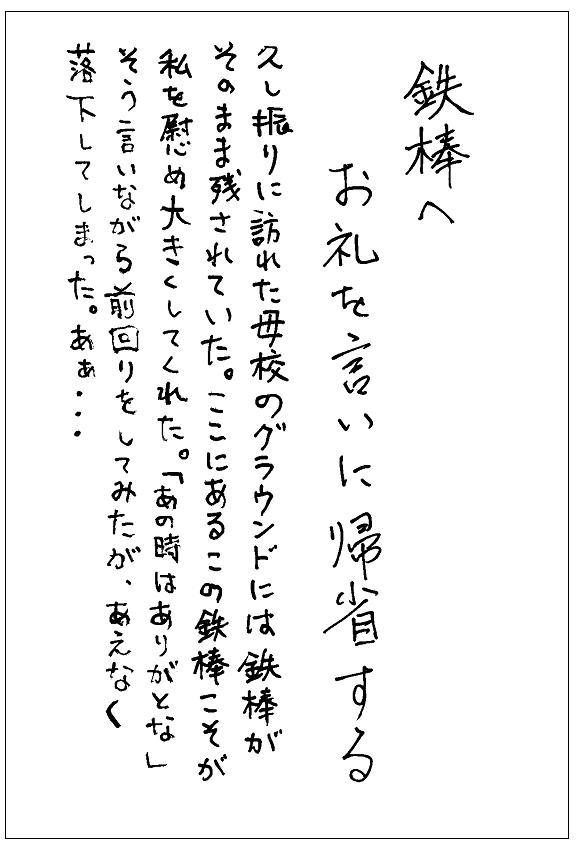 鉄棒へ
お礼を言いに帰省する
久し振りに訪れた母校のグラウンドには鉄棒が
そのまま残されていた。ここにあるこの鉄棒こそが
私を慰め大きくしてくれた。「あの時はありがとな」
そう言いながら前回りをしてみたが、あえなく
落下してしまった。あぁ・・・